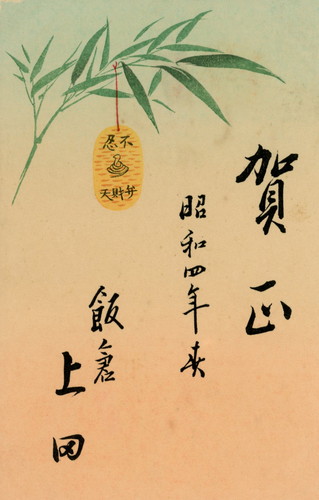 賀正
昭和四年春
不忍
弁財天
飯倉
上田